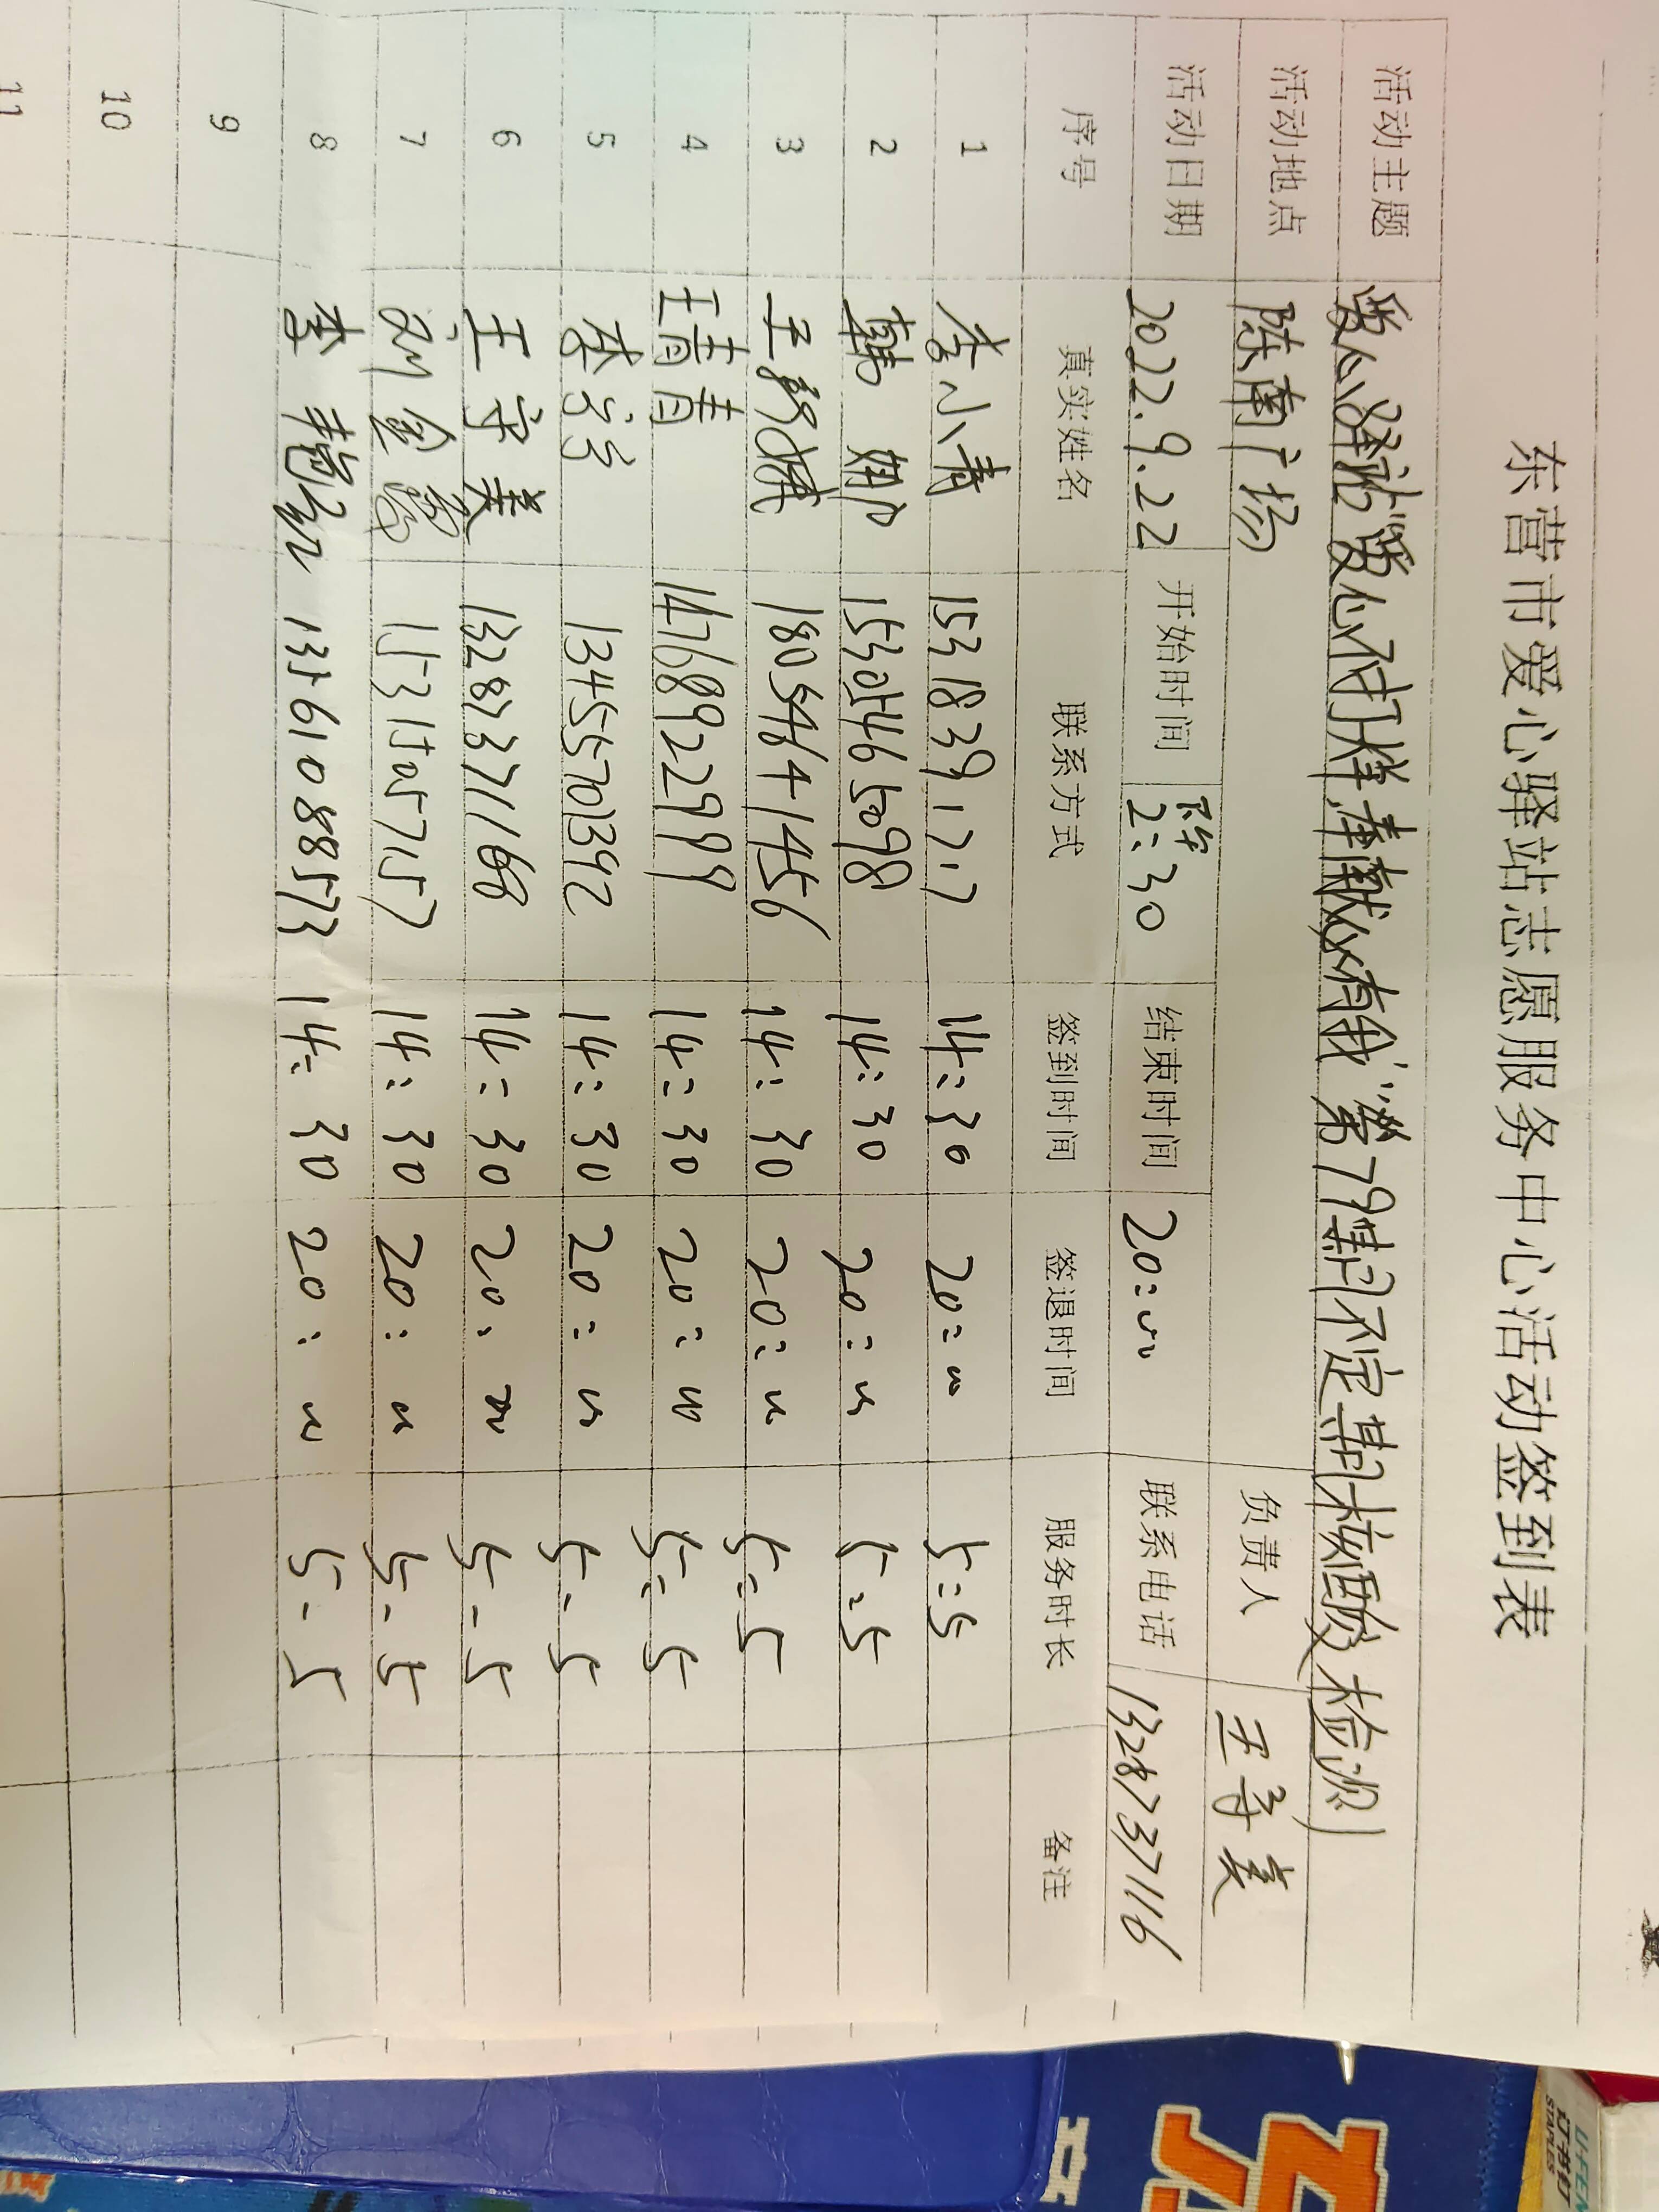 东营市爱心驿站志愿服务中心活动签到表
活动主题 爱心驿站"爱心对样奉献有我"第79期不定期核酸检测
活动地点 陈南广场 负责人 王守美
活动日期 2022.9.22 开始时间 下午2:30 结束时间 20:00 联系电话 13287371166
序号 真实姓名 联系方式 签到时间 签退时间 服务时长 备注
1 李小青 15318391717 14:30 20:00 5:5
2 韩 15305465098 14:30 20:00 5:5
3 王 18054641456 14:30 20:00 5:5
4 王青青 14768922999 14:30 20:00 5:5
5 李 13455701392 14:30 20:00 5.5
6 王守美 13287371166 14:30 20:00 5.5
7 刘金 15315057157 14:30 20:00 5.5
8 李艳红 13561088573 14:30 20:00 5.5
9
10
11
U-FE
订书钉
STAPLES